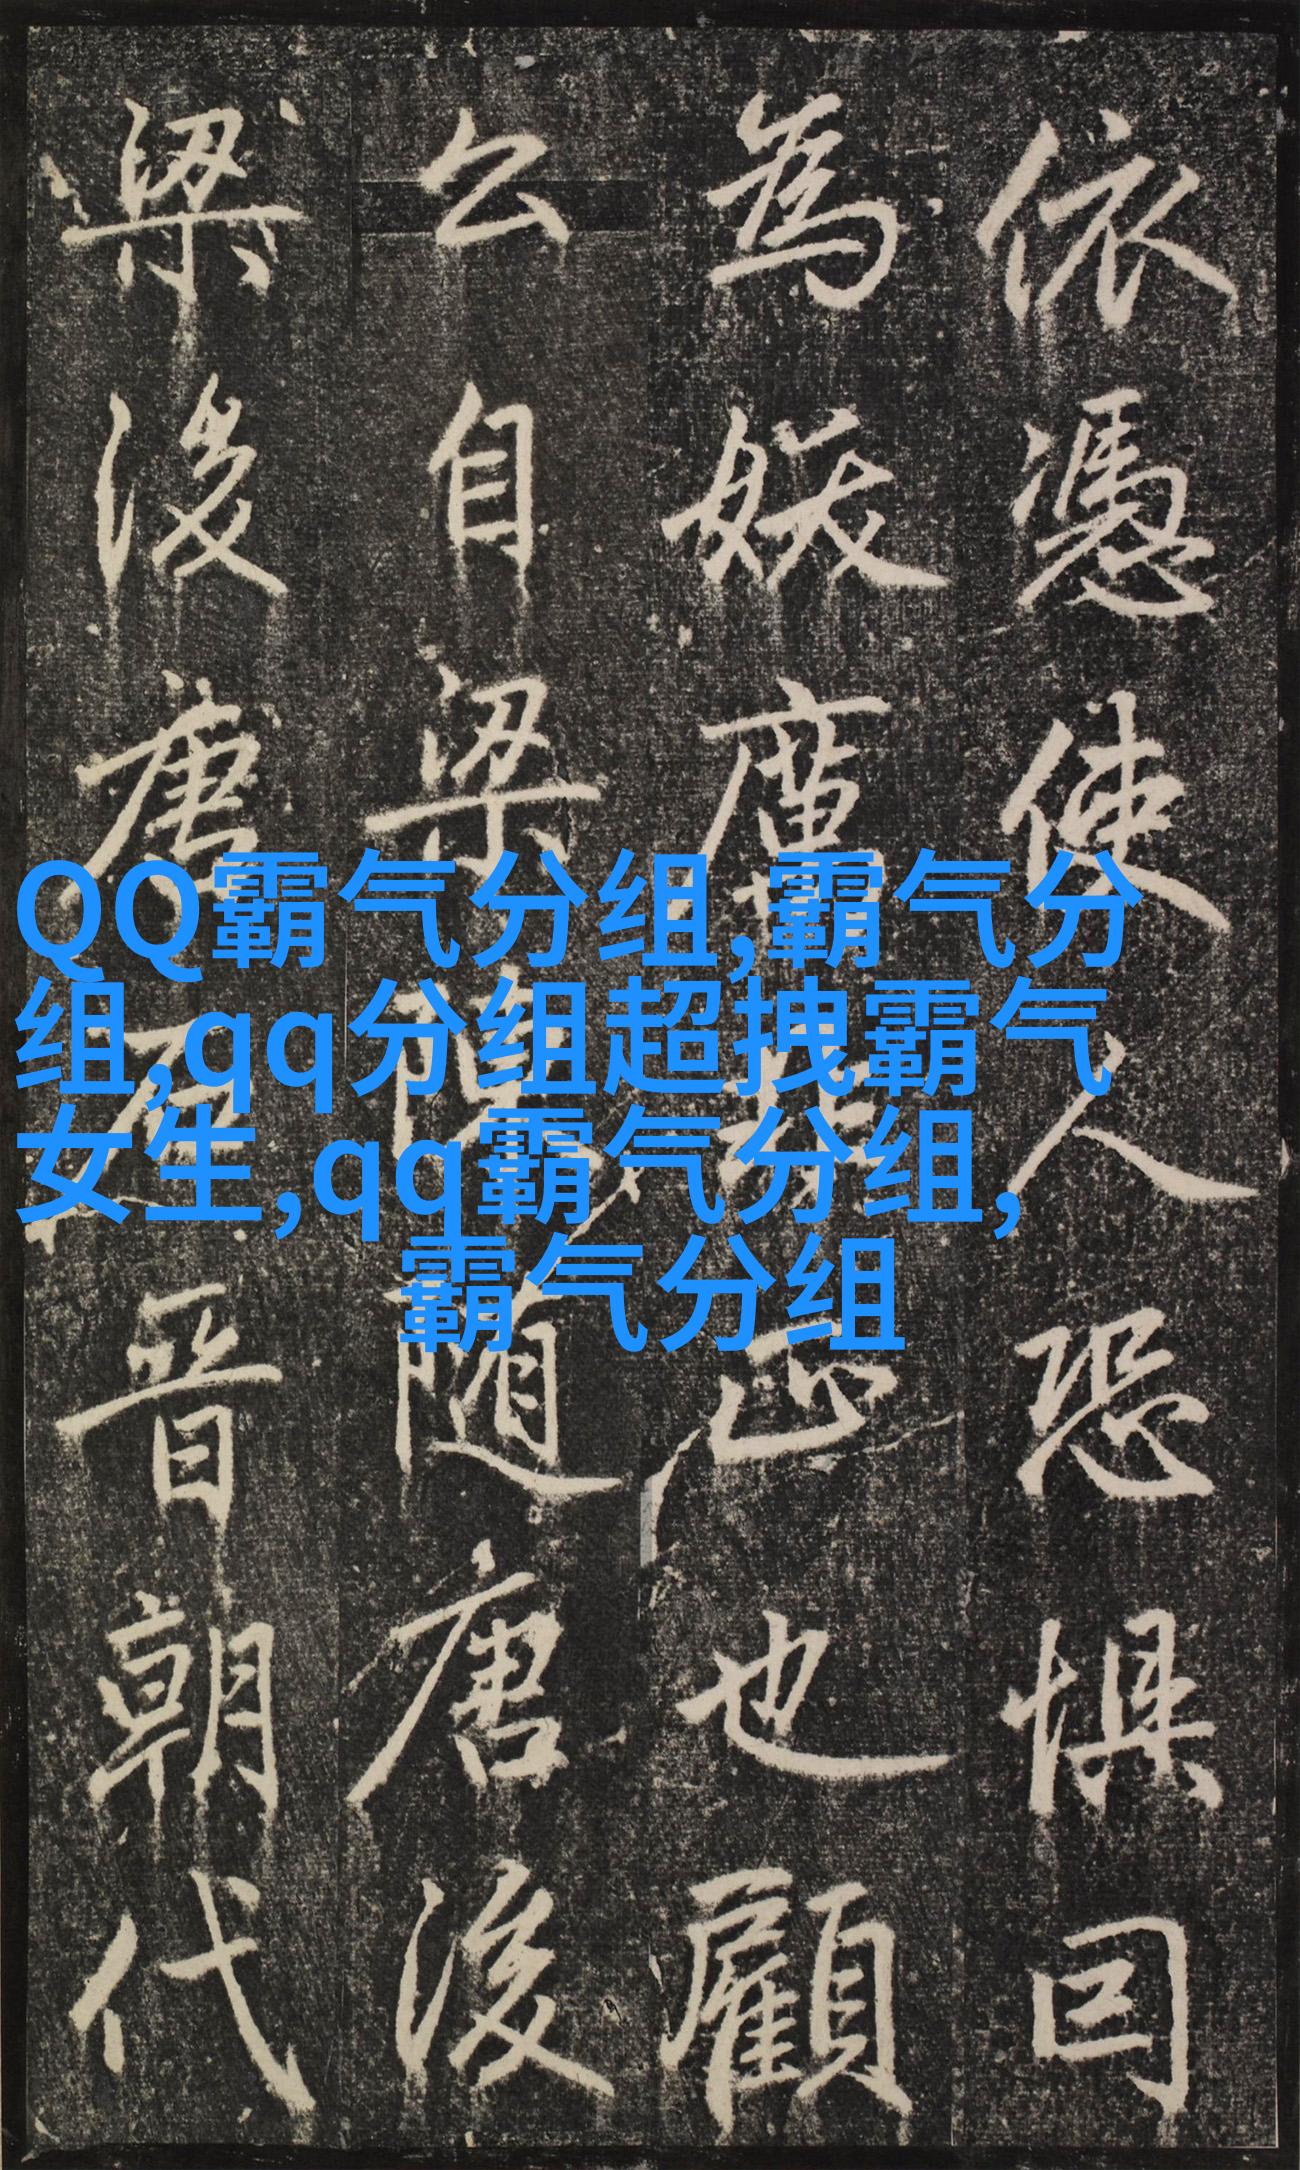 依憑使人恐惧囙
為妖正也顧
公自梁随唐後
梁後唐晋朝代
QQ霸气分组,霸气分
组,qq分组超拽霸气
女生,qq霸气分组,
霸气分组